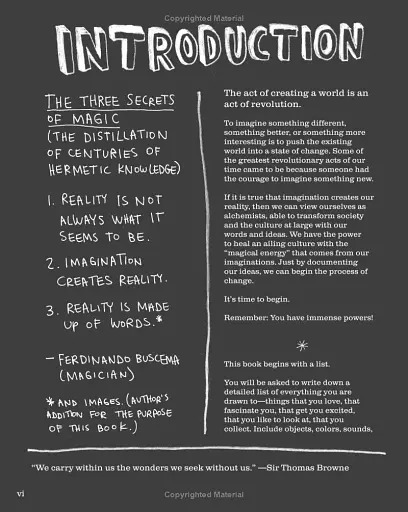 Copyrighted Material
INTRODUCTION
THE THREE SECRETS
OF MAGIC
(THE DISTILLATION
OF CENTURIES OF
HERMETIC KNOWLEDGE)
1. REALITY IS NOT
ALWAYS WHAT IT
SEEMS TO BE.
2. IMAGINATION
CREATES REALITY.
3. REALITY IS MADE
UP OF WORDS.*
– FERDINANDO BUSCEMA
(MAGICIAN)
* AND IMAGES. (AUTHOR'S
ADDITION FOR THE PURPOSE
OF THIS BOOK.)
The act of creating a world is an
act of revolution.
To imagine something different,
something better, or something more
interesting is to push the existing
world into a state of change. Some of
the greatest revolutionary acts of our
time came to be because someone had
the courage to imagine something new.
If it is true that imagination creates our
reality, then we can view ourselves as
alchemists, able to transform society
and the culture at large with our
words and ideas. We have the power
to heal an ailing culture with the
“magical energy” that comes from our
imaginations. Just by documenting
our ideas, we can begin the process of
change.
It’s time to begin.
Remember: You have immense powers!
*
This book begins with a list.
You will be asked to write down a
detailed list of everything you are
drawn to—things that you love, that
fascinate you, that get you excited,
that you like to look at, that you
collect. Include objects, colors, sounds,
“We carry within us the wonders we seek without us.” —Sir Thomas Browne
vi
Copyrighted Material